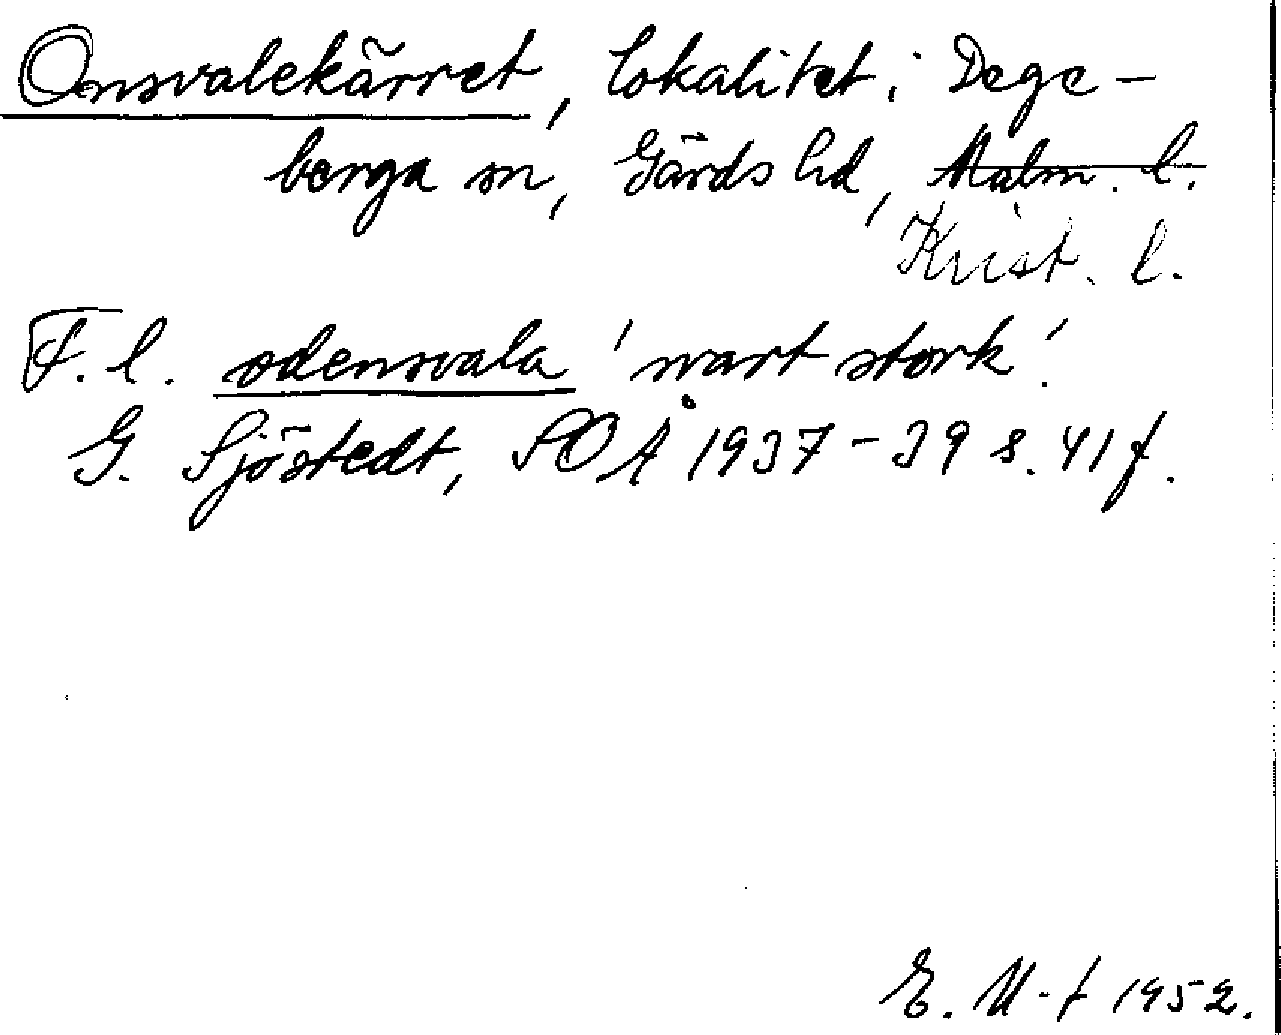 Onsvalekärret, lokalitet i Dege-
berga sn, Gärds hd, Malm. l.
Krist. l.
F. l. odensvala 'svart stork'.
G. Sjöstedt, SOÅ 1937-39 s. 41 f.
E. M-t 1952.